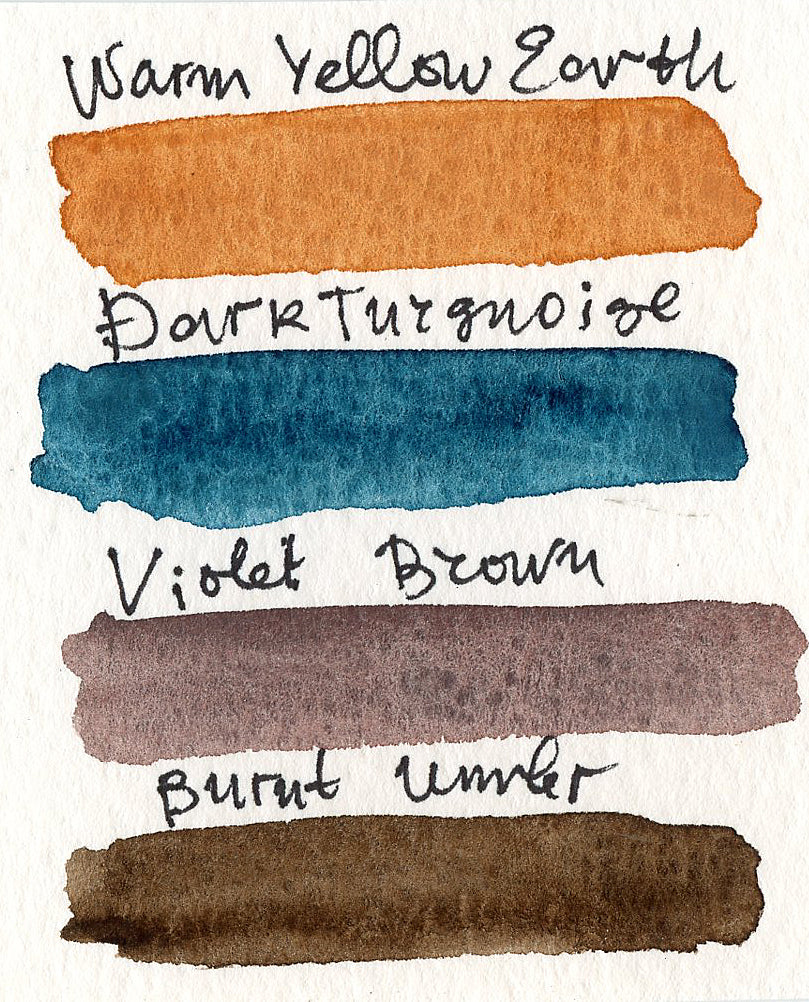 Warm Yellow Earth
Dark Turqnoise
Violet Brown
Burnt Umber